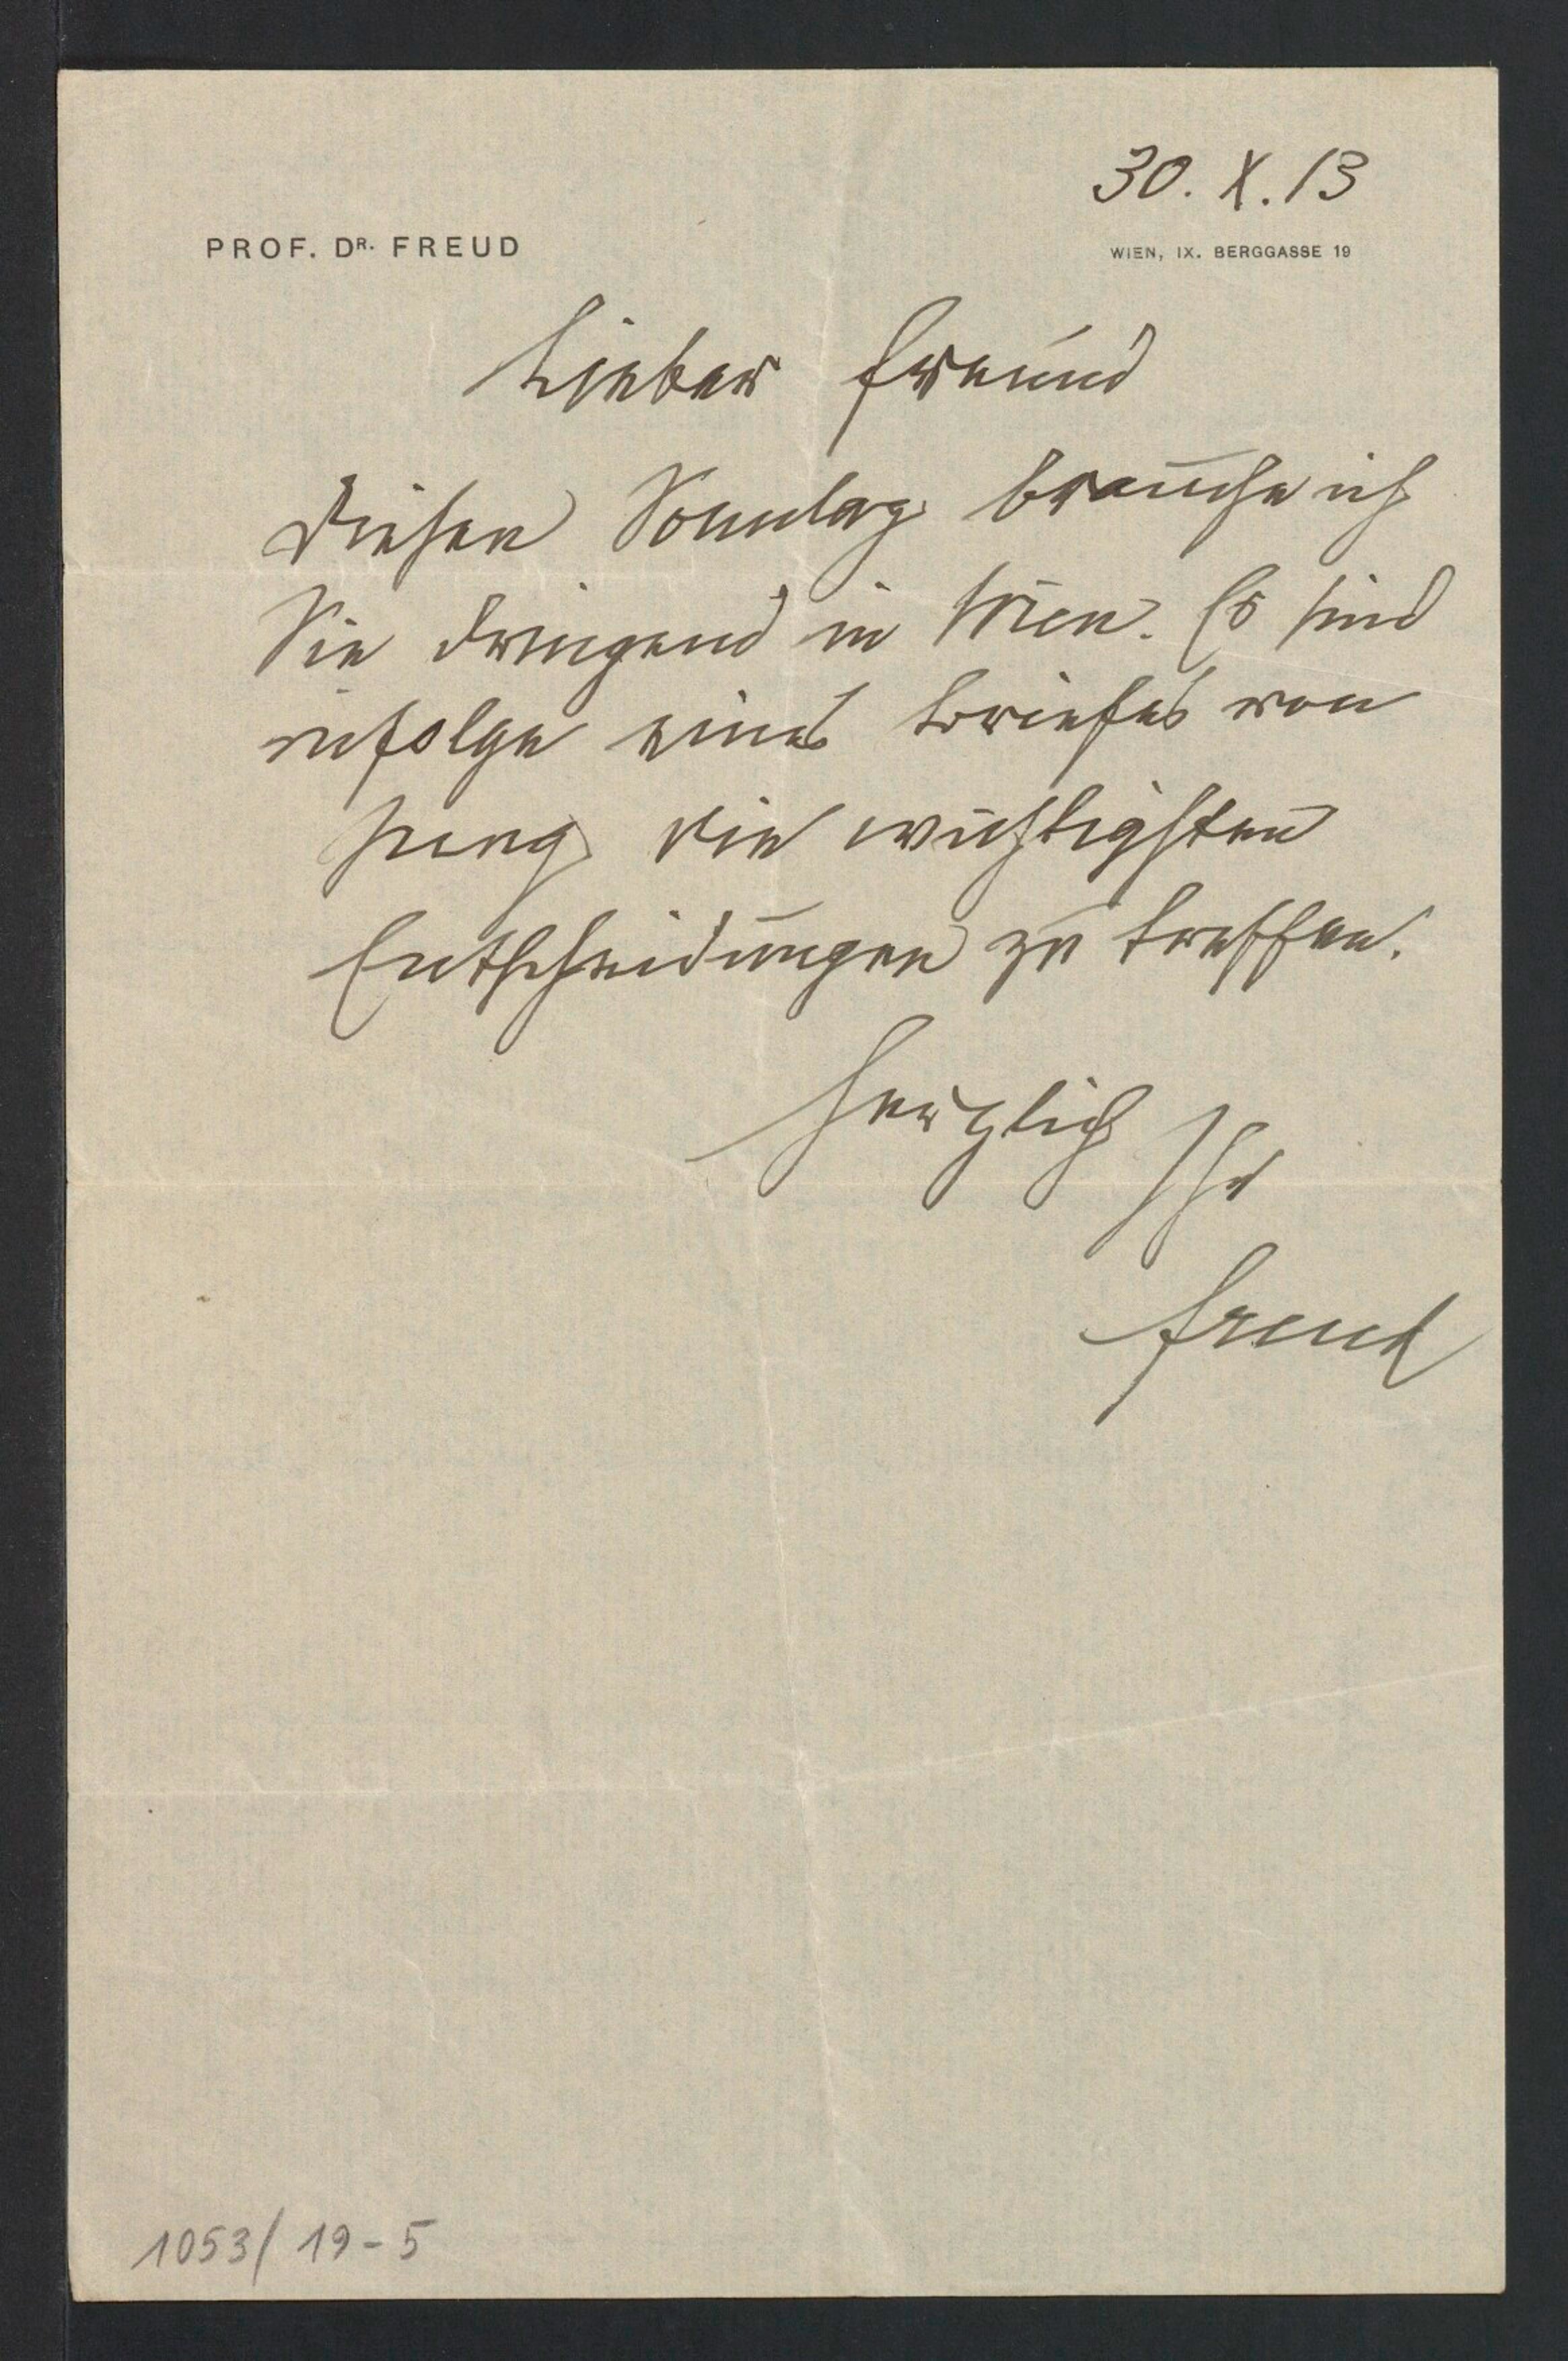 30. X. 13
PROF. DR. FREUD
WIEN, IX. BERGGASSE 19
Lieber Freund
Diesen Sonntag brauche ich
Sie dringend in Wien. Es sind
infolge eines Briefes von
Jung die wichtigsten
Entscheidungen zu treffen.
Herzlich Ihr
Freud
1053/19-5